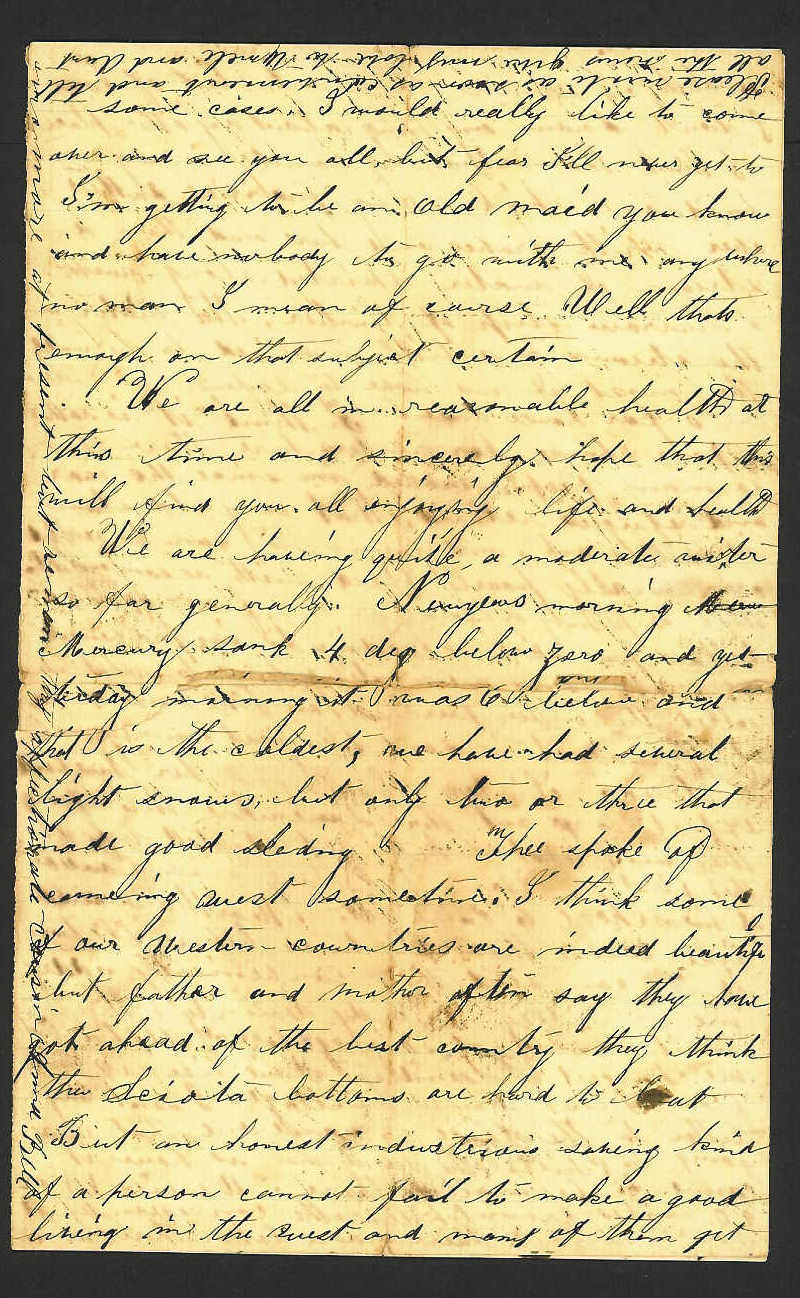 some cases. I would really like to come
over and see you all, but fear I'll never get to
I'm getting to be an old maid you know
and have nobody to go with me any where
no man I mean of course Well thats
enough on that subject certain
We are all in reasonable health at
this time and sincerely hope that this
will find you all enjoying life and health
We are having quite a moderate winter
so far generally. Newyears morning
Mercury sank 4 deg below zero and yes-
terday morning it was 6 below and
that is the coldest, we have had several
light snows, but only two or three that
made good sleding Thee spoke of
comeing west sometime. I think some
of our western countries are indeed beautiful
but father and mother often say they have
not ahead of the best country they think
the Sciota bottoms are hard to beat
But an honest industrious saving kind
of a person cannot fail to make a good
living in the west and many of them get
Please write as soon as convenient and tell
all the news give my love to Uncle and Aunt
no more at present but remain thy affectionate Cousin Bell